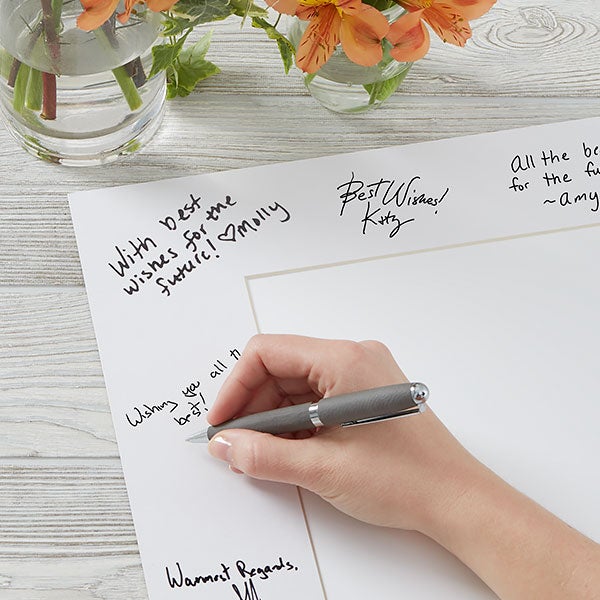 With best
wishes for the
future! ♡Molly
Best Wishes!
Katy
All the be
for the fu
~amy
Wishing you all th
best!
Warmest Regards,